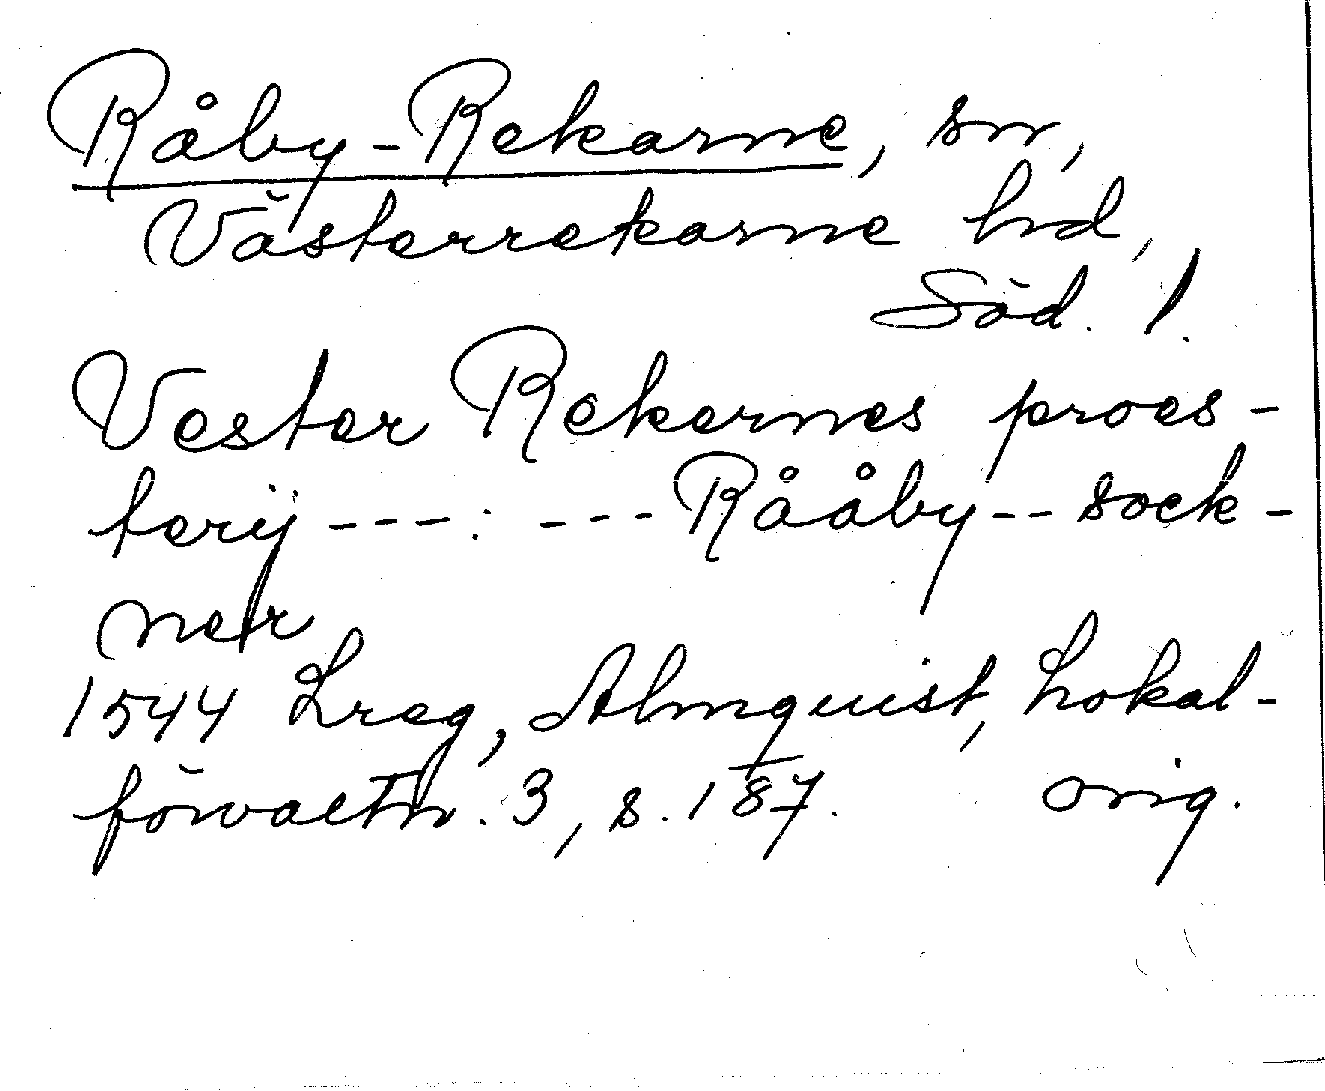 Råby-Rekarne, sn,
Västerrekarne hd,
Söd. 1.
Vester Rekernes proes-
terij ---:--- Rååby -- sock-
ner
1544 Lreg, Almquist, Lokal-
förvaltn. 3, s. 187. orig.